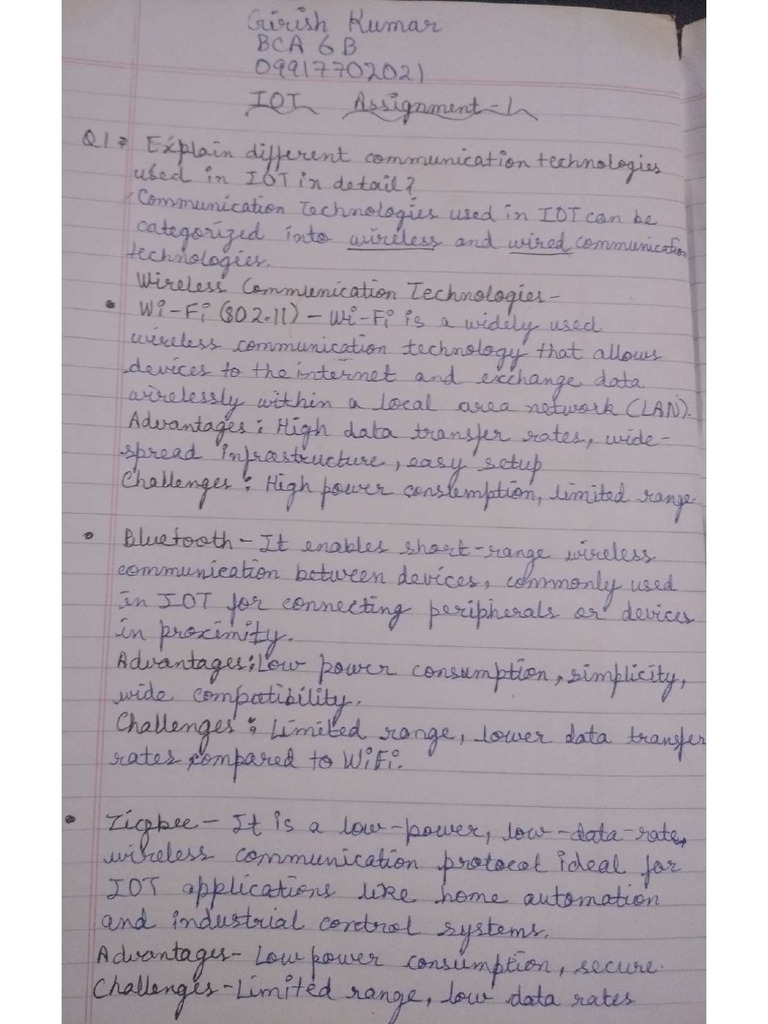 Girish Kumar
BCA 6 B
09917702021
IOT Assignment-1
Q1= Explain different communication technologies
used in IOT in detail?
Communication Technologies used in IOT can be
categorized into wireless and wired communication
technologies.
Wireless Communication Technologies-
• Wi-Fi (802.11) - Wi-Fi is a widely used
wireless communication technology that allows
devices to the internet and exchange data
wirelessly within a local area network (LAN).
Advantages: High data transfer rates, wide-
spread infrastructure, easy setup
Challenges: High power consumption, limited range.
• Bluetooth - It enables short-range wireless
communication between devices, commonly used
in IOT for connecting peripherals or devices
in proximity.
Advantages: Low power consumption, simplicity,
wide compatibility.
Challenges: Limited range, lower data transfer
rates compared to WiFi.
• Zigbee - It is a low-power, low-data-rate,
wireless communication protocol ideal for
IOT applications like home automation
and industrial control systems.
Advantages - Low power consumption, secure.
Challenges - Limited range, low data rates